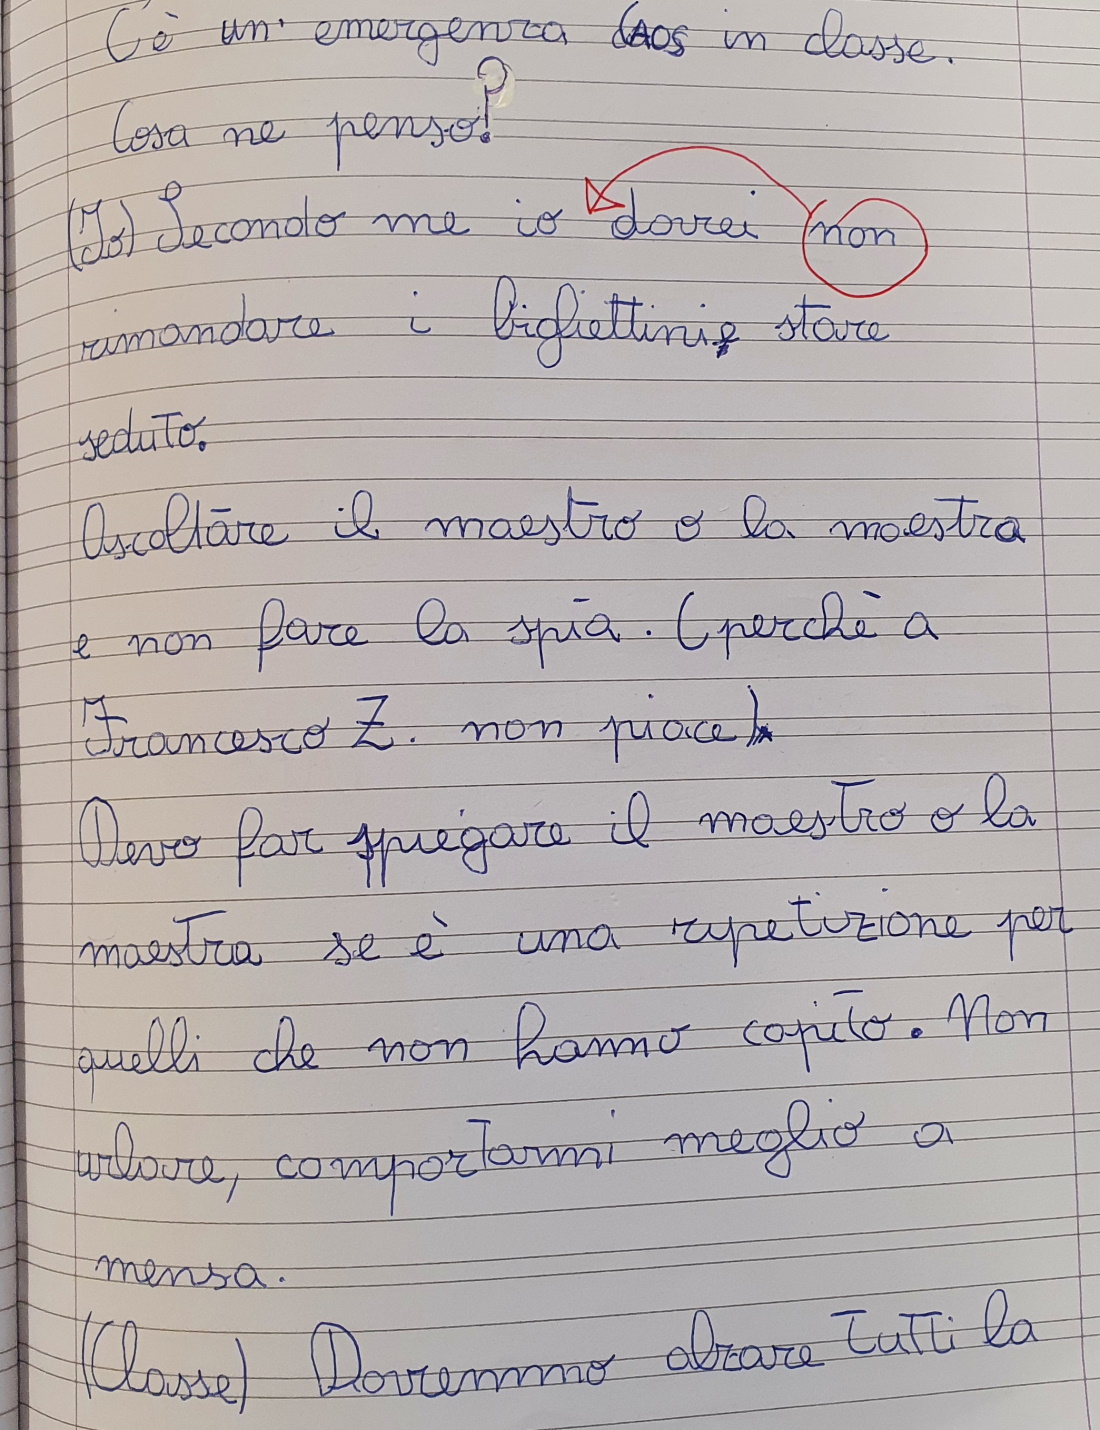 C'è un' emergenza CAOS in classe.
Cosa ne penso?
(Io) Secondo me io dovrei non
rimandare i bigliettini, stare
seduto.
Ascoltare il maestro o la maestra
e non fare la spia. (perchè a
Francesco Z. non piace).
Devo far spiegare il maestro o la
maestra se è una ripetizione per
quelli che non hanno capito. Non
urlare, comportarmi meglio a
mensa.
(Classe) Dovremmo alzare tutti la